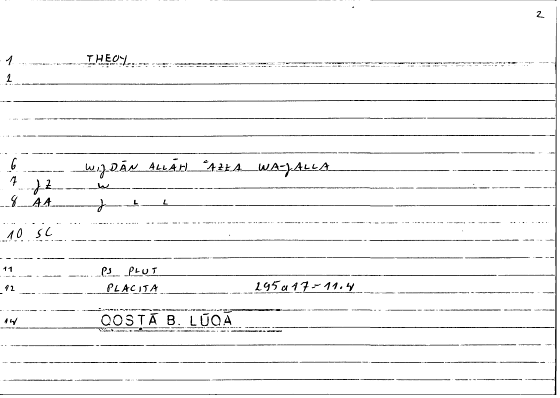 2
1 THEOY
2
6 WIJDĀN ALLĀH ʿAZZA WA-JALLA
7 JZ W
8 AA J L L
10 SC
11 PS PLUT
12 PLACITA 295a17-11.4
14 QOSṬĀ B. LŪQĀ